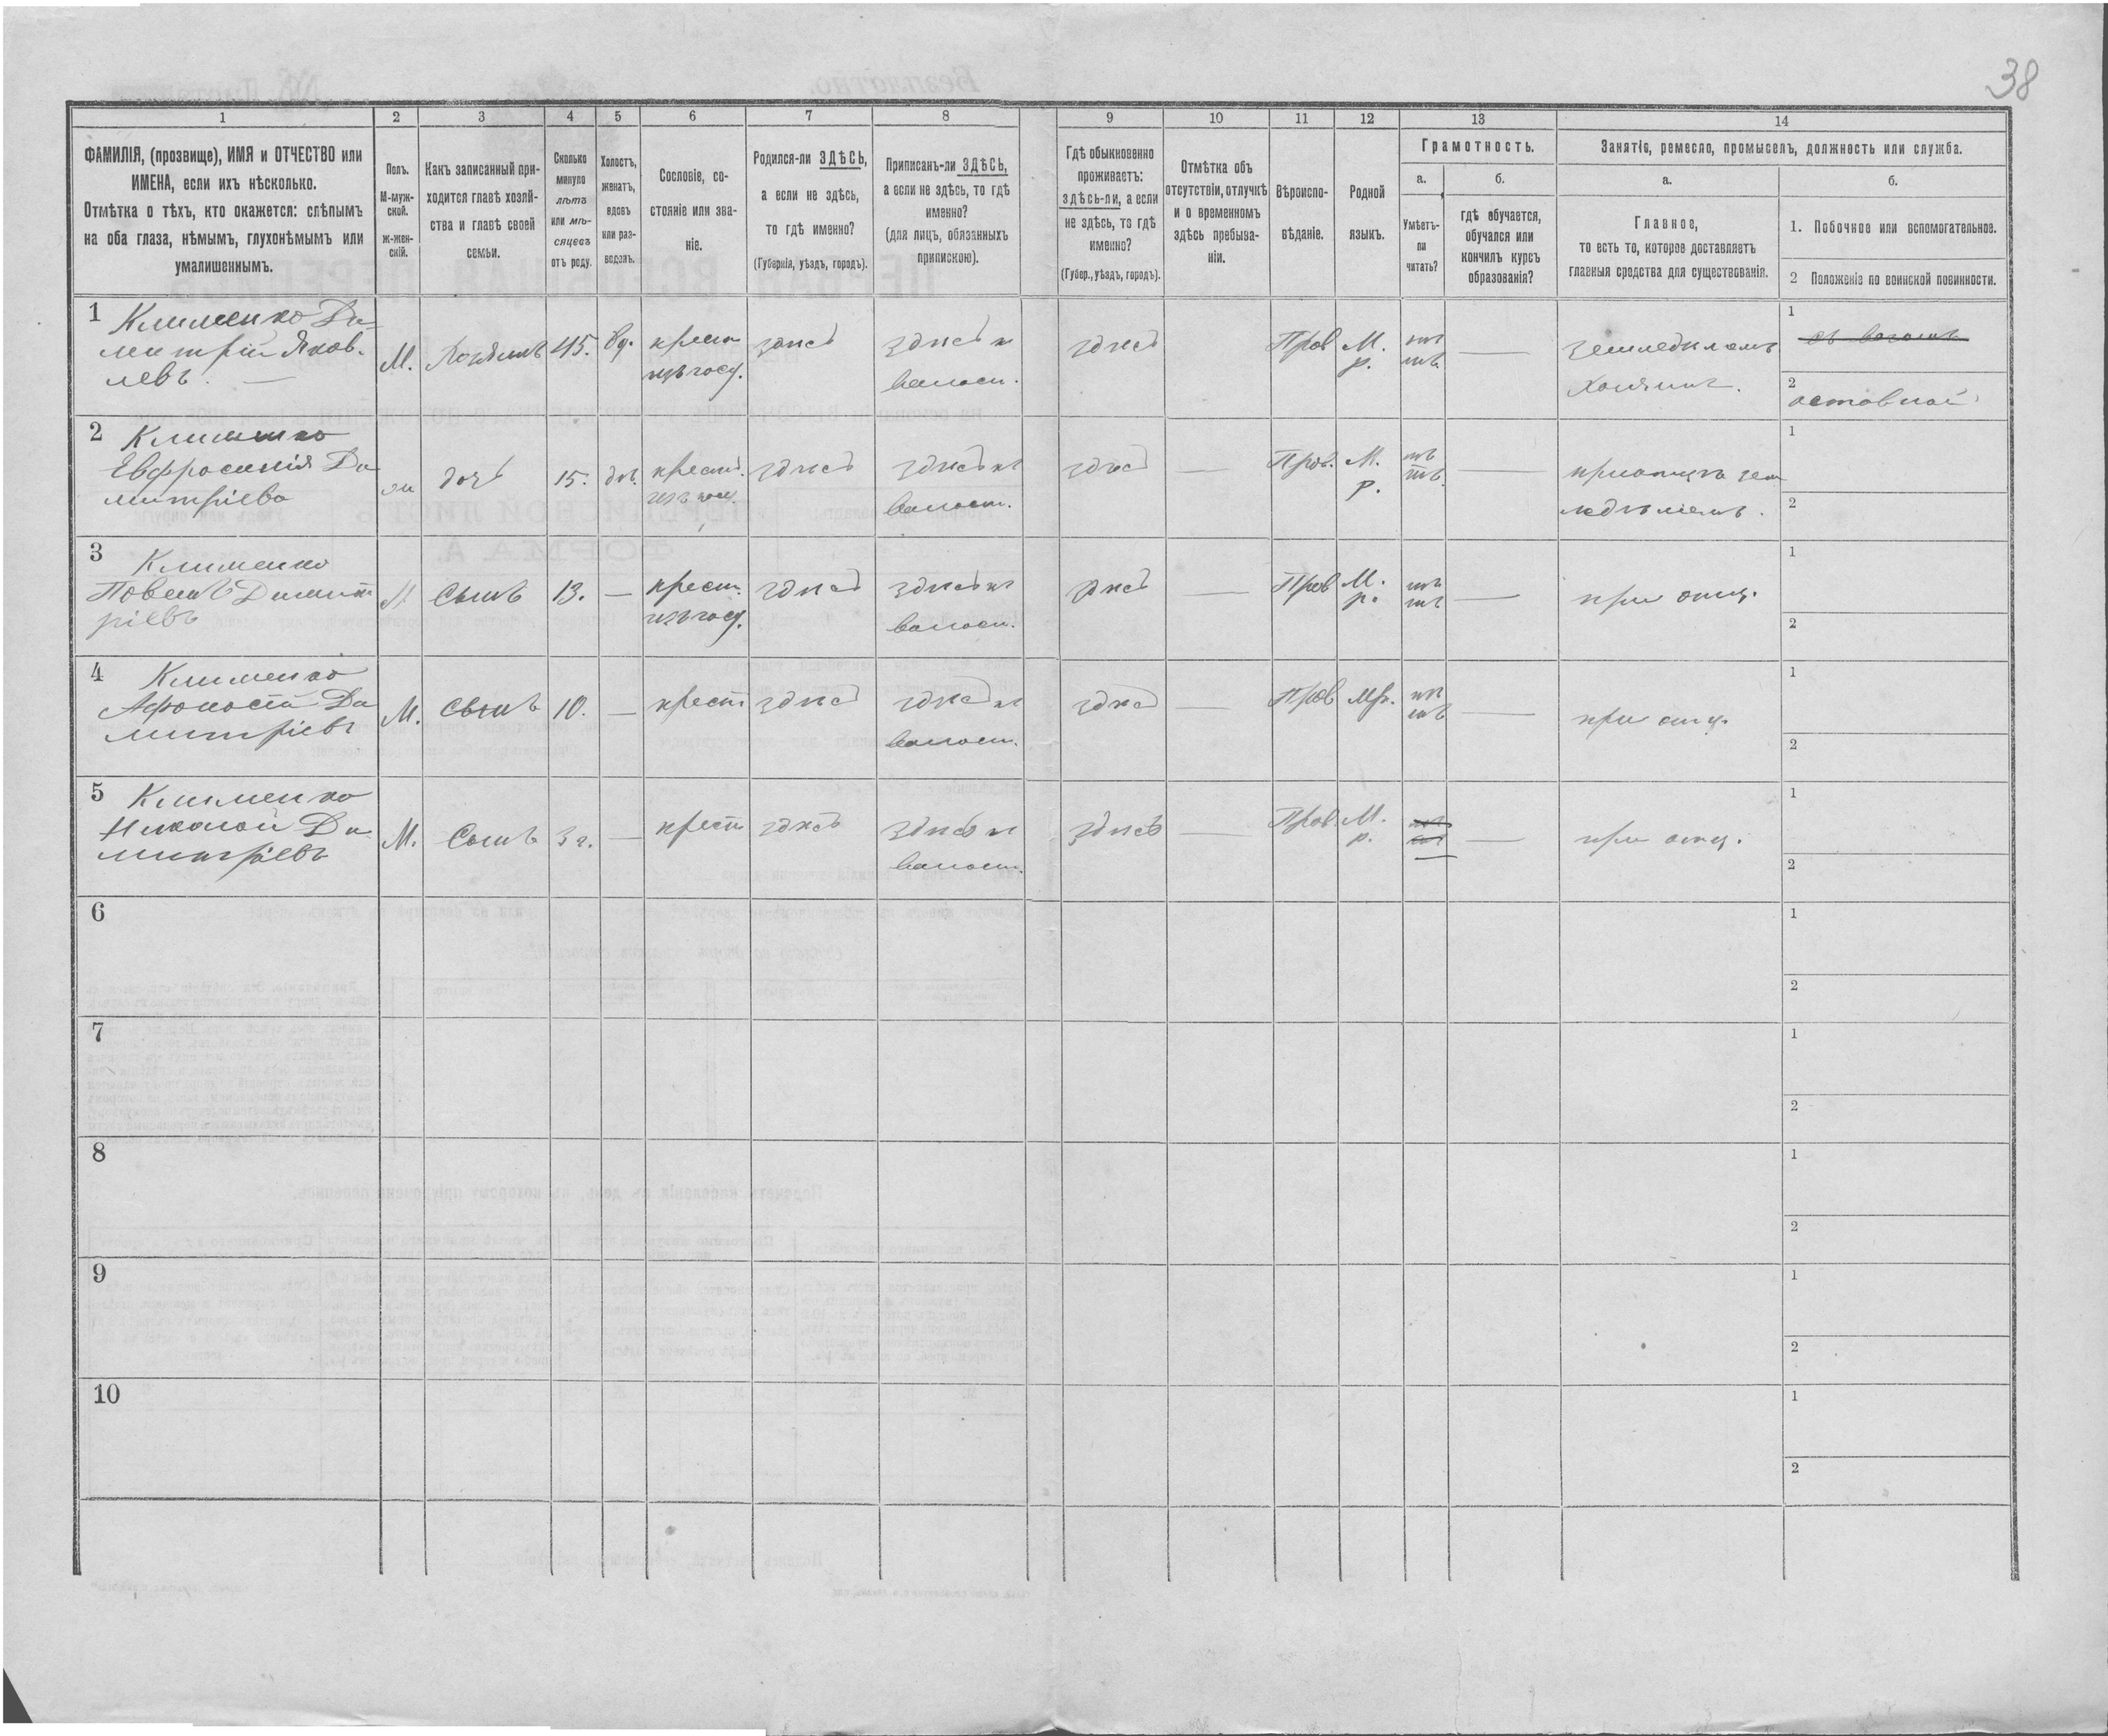 38
1 2 3 4 5 6 7 8 9 10 11 12 13 14
ФАМИЛІЯ, (прозвище), ИМЯ и ОТЧЕСТВО или
ИМЕНА, если ихъ нѣсколько.
Отмѣтка о тѣхъ, кто окажется: слѣпымъ
на оба глаза, нѣмымъ, глухонѣмымъ или
умалишеннымъ.
Полъ.
М-муж-
ской.
ж-жен-
скій.
Какъ записанный при-
ходится главѣ хозяй-
ства и главѣ своей
семьи.
Сколько
минуло
лѣтъ
или мѣ-
сяцевъ
отъ роду.
Холостъ,
женатъ,
вдовъ
или раз-
веденъ.
Сословіе, со-
стояніе или зва-
ніе.
Родился-ли ЗДѢСЬ,
а если не здѣсь,
то гдѣ именно?
(Губернія, уѣздъ, городъ).
Приписанъ-ли ЗДѢСЬ,
а если не здѣсь, то гдѣ
именно?
(для лицъ, обязанныхъ
припискою).
Гдѣ обыкновенно
проживаетъ:
здѣсь-ли, а если
не здѣсь, то гдѣ
именно?
(Губер., уѣздъ, городъ).
Отмѣтка объ
отсутствіи, отлучкѣ
и о временномъ
здѣсь пребыва-
ніи.
Вѣроиспо-
вѣданіе.
Родной
языкъ.
Грамотность.
а.
Умѣетъ-
ли
читать?
б.
гдѣ обучается,
обучался или
кончилъ курсъ
образованія?
Занятіе, ремесло, промыселъ, должность или служба.
а.
Главное,
то есть то, которое доставляетъ
главныя средства для существованія.
б.
1. Побочное или вспомогательное.
2 Положеніе по воинской повинности.
1 Клименко Ди-
митрій Яков-
левъ. —
М.
Хозяинъ
45.
вд.
крест
изъ госу.
здѣсь
здѣсь къ
волост.
здѣсь
Прав
М.
р.
нѣ
тъ.
—
земледѣлецъ
хозяинъ.
1
2
2 Клименко
Евфросинія Ди
митріева
ж
дочь
15.
дѣв.
крест.
изъ госу.
здѣсь
здѣсь къ
волост.
здѣсь
—
Прав.
М.
р.
нѣ
тъ.
—
при отцѣ зем
ледѣліемъ.
1
2
3 Клименко
Повелъ Димит
ріевъ
М
Сынъ
13.
—
крест.
изъ госу.
здѣсь
здѣсь къ
волост.
здѣсь
—
Прав
М.
р.
нѣ
тъ
—
при отц.
1
2
4 Клименко
Афоносій Ди
митріевъ
М.
Сынъ
10.
—
крест
здѣсь
здѣсь къ
волост.
здѣсь
—
Прав
Мр.
нѣ
тъ
—
при отц.
1
2
5 Клименко
Николой Ди
митріевъ
М.
Сынъ
3 г.
—
крест
здѣсь
здѣсь къ
волост.
здѣсь
—
Прав.
М.
р.
нѣ
тъ
—
при отц.
1
2
6
1
2
7
1
2
8
1
2
9
1
2
10
1
2